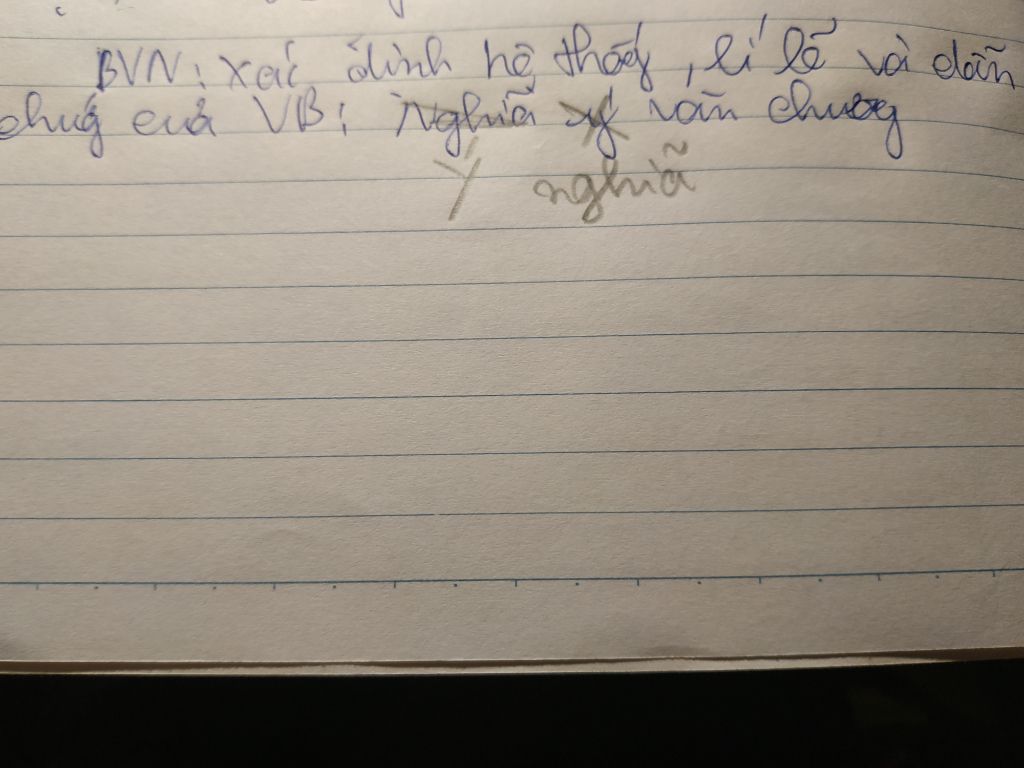 BVN: Xác định hệ thống, lí lẽ và dẫn
chứng của VB: Nghĩa ý văn chương
Ý nghĩa